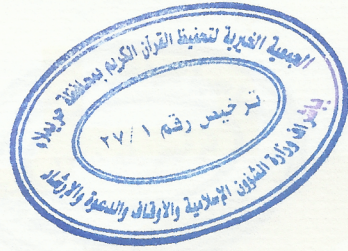 الجمعية الخيرية لتحفيظ القرآن الكريم بمحافظة حريملاء
ترخيص رقم ٢٧/١
بإشراف وزارة الشؤون الإسلامية والاوقاف والدعوة والإرشاد